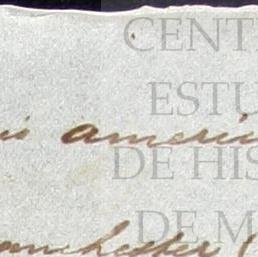 CENT
ESTU
is america
DE HIS
DE M
anchester (